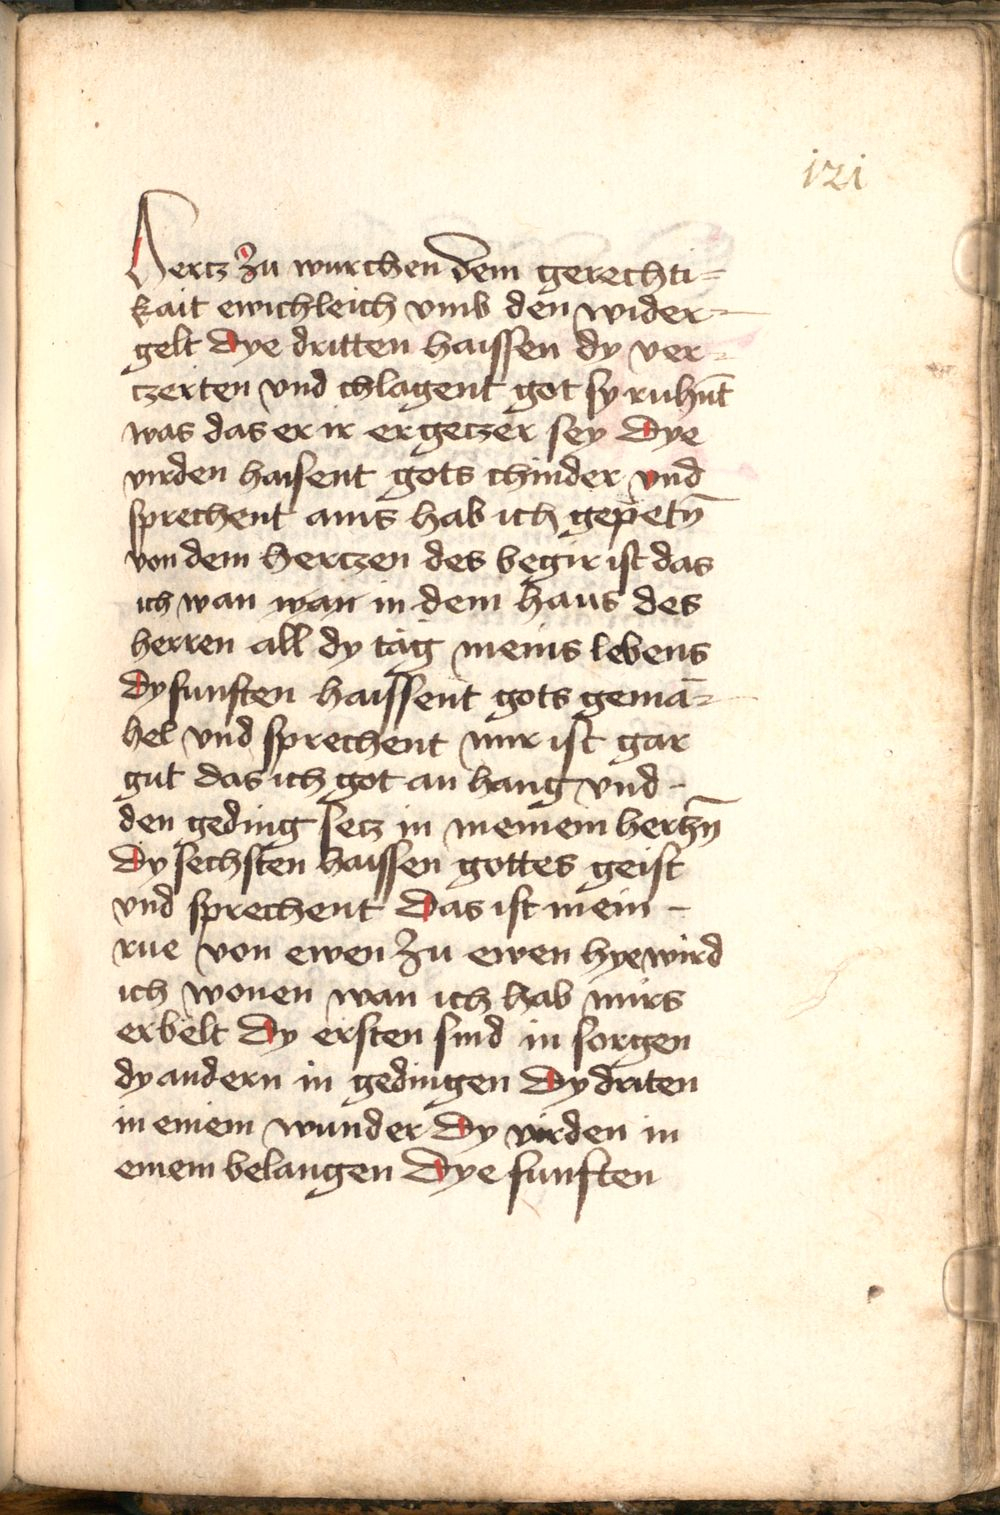 121
Hercz zu wurchen dem gerechti=
kait ewichleich vmb den wider=
gelt Dye dritten haissen dy ver=
czerten vnd chlagent got sy ruhn̄t
was das er ir ergeczer sey Dye
virden haisent gots chinder vnd
sprechent ains hab ich gepetn̄
von dem herczen des begir ist das
ich wan wan in dem haus des
herren all dy tag meins lebens
Dy funften haissent gots gemā=
hel vnd sprechent mir ist gar
gut das ich got an hang vnd -
den geding secz in meinem herczn̄
Dy sechsten haissen gottes geist
vnd sprechent Das ist mein -
rue von ewen zu ewen hye wird
ich wonen wan ich hab mirs
erbelt Dy ersten sind in sorgen
dy andern in gedingen Dy driten
in einem wunder Dy virden in
einem belangen Dye funften